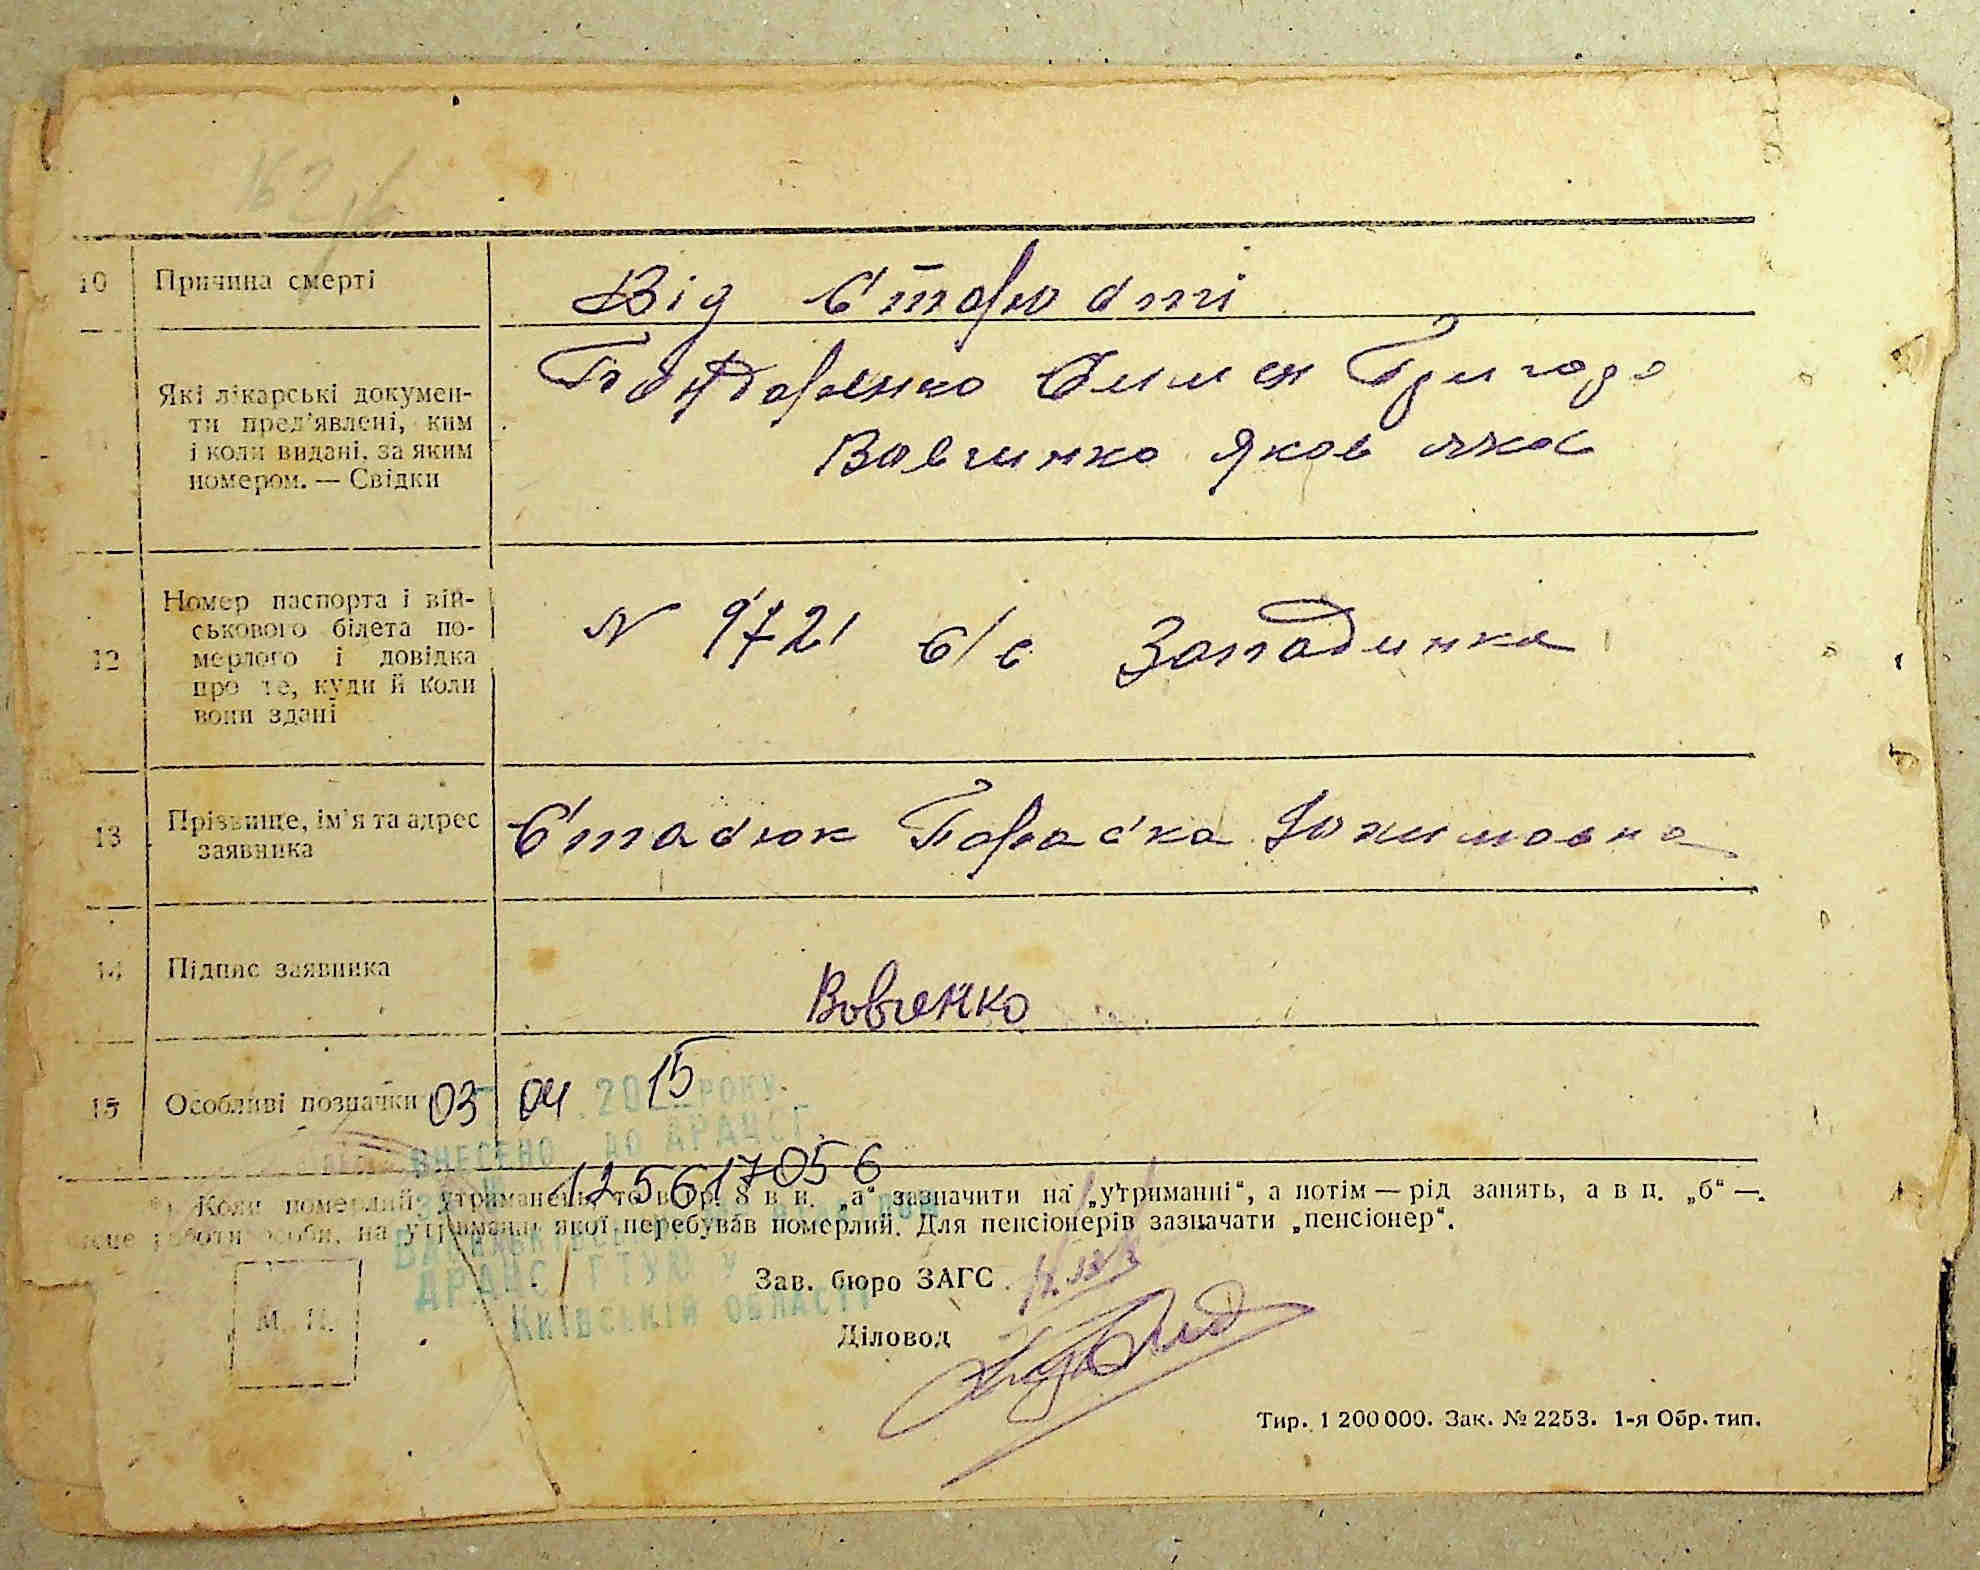 162
10 Причина смерті Від Старости
Які лікарські докумен-
ти пред'явлені, ким
і коли видані, за яким
номером. — Свідки
Бондаренко Семен Григоро
Вовчинко Яков Яков
12 Номер паспорта і вій-
ськового білета по-
мерлого і довідка
про те, куди й коли
вони здані
N 9721 с/с Западинка
13 Прізвище, ім'я та адрес
заявника
Стасюк Параска Юхимовна
14 Підпис заявника Вовченко
15 Особливі позначки 03 04 2015 РОКУ
ВНЕСЕНО ДО ДРАЦСГ
125617056
*) Коли померлий утриманець, то в гр. 8 в п. „а“ зазначити на „утриманні“, а потім — рід занять, а в п. „б“ —
місце роботи особи, на утриманні якої перебував померлий. Для пенсіонерів зазначати „пенсіонер“.
ДРАЦС ГТУЮ У
КИЇВСЬКІЙ ОБЛАСТІ
Зав. бюро ЗАГС
М. П.
Діловод
Тир. 1 200 000. Зак. № 2253. 1-я Обр. тип.